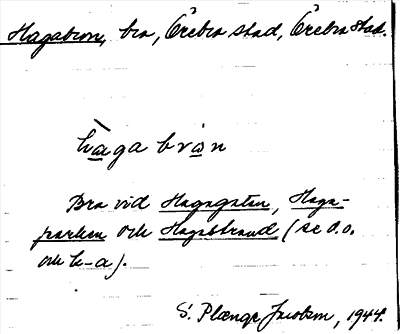 Hagabron, bro, Örebro stad, Örebro stad.
hàga bròn
Bro vid Hagagatan, Haga-
parken och Hagastrand (se d.o.
och k-a).
S. Plænge Jacobson, 1944.